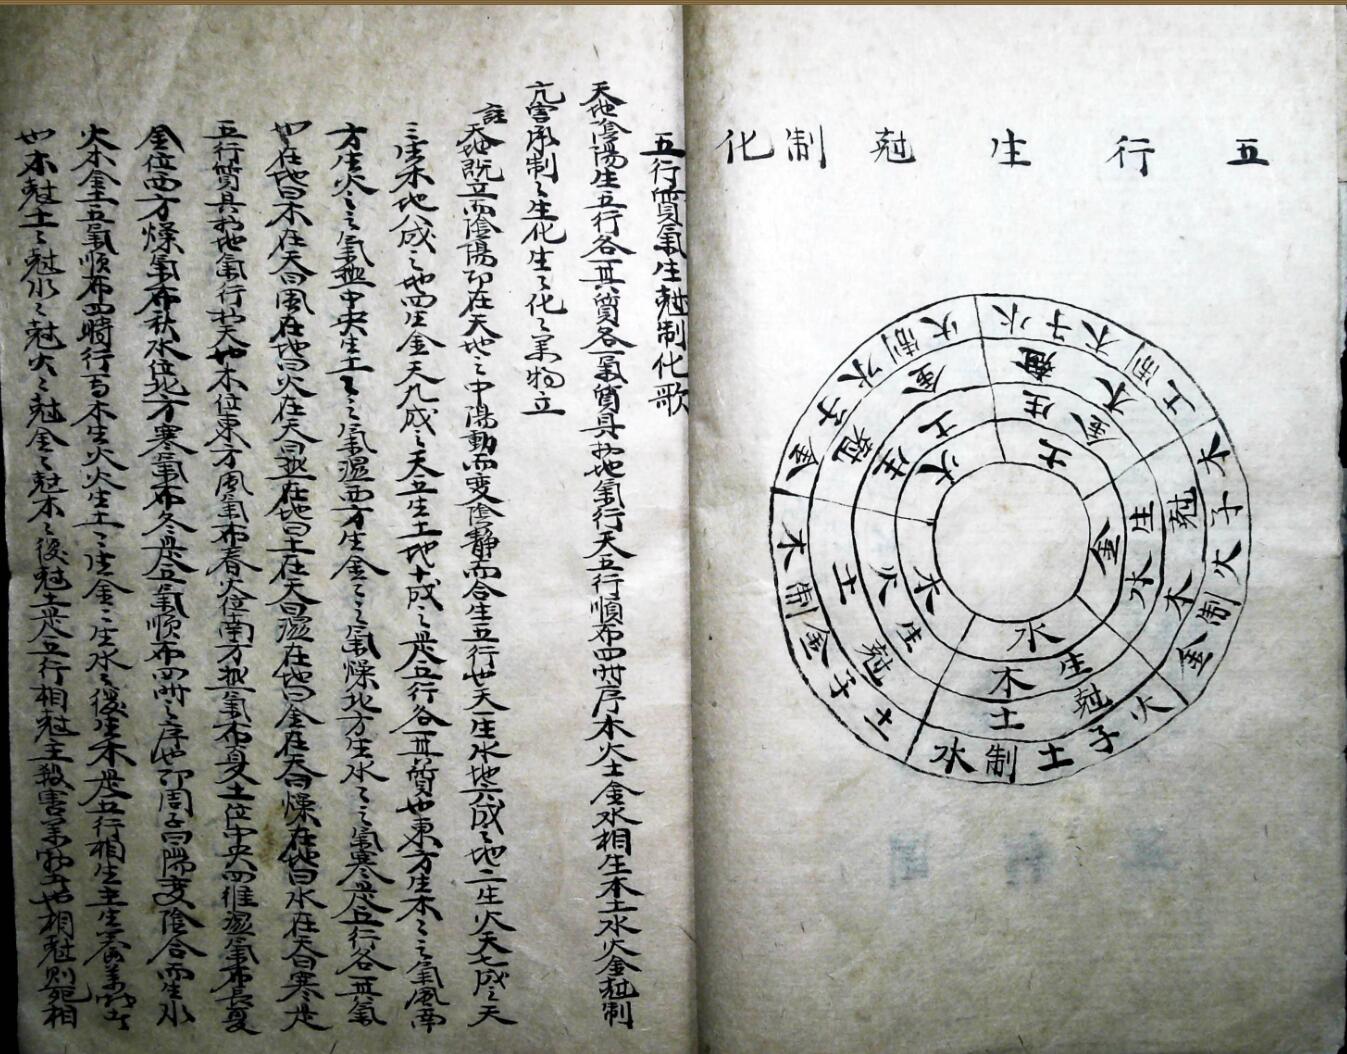 五行生尅制化
木子火制金
尅木
生水
金
火子土制水
尅土
生木
水
土子金制木
尅土
生火
木
金子水制火
尅金
生土
火
水子木制土
尅木
生金
土
五行質氣生尅制化歌
天地陰陽生五行各一其質各一氣質具於地氣行天五行順布四時序木火土金水相生木土水火金尅制
亢害承制〻生化生〻化〻萬物立
註天地既立而陰陽即在天地之中陽動而變陰静而合生五行也天生水地六成之地二生火天七成之天
三生木地八成之地四生金天九成之天五生土地十成之是五行各一其質也東方生木〻之氣風南
方生火〻之氣熱中央生土〻之氣濕西方生金〻之氣燥北方生水〻之氣寒是五行各一其氣
也在地曰木在天曰風在地曰火在天曰熱在地曰土在天曰濕在地曰金在天曰燥在地曰水在天曰寒是
五行質具於地氣行於天也木位東方風氣布春火位南方熱氣布夏土位中央四維濕氣布長夏
金位西方燥氣布秋水位北方寒氣布冬是五氣順布四時之序也即周子曰陽變陰合而生水
火木金土五氣順布四時行焉木生火火生土〻生金〻生水〻復生木是五行相生主生養萬物者
也木尅土〻尅水〻尅火〻尅金〻尅木〻復尅土是五行相尅主殺害萬物者也相尅則死相